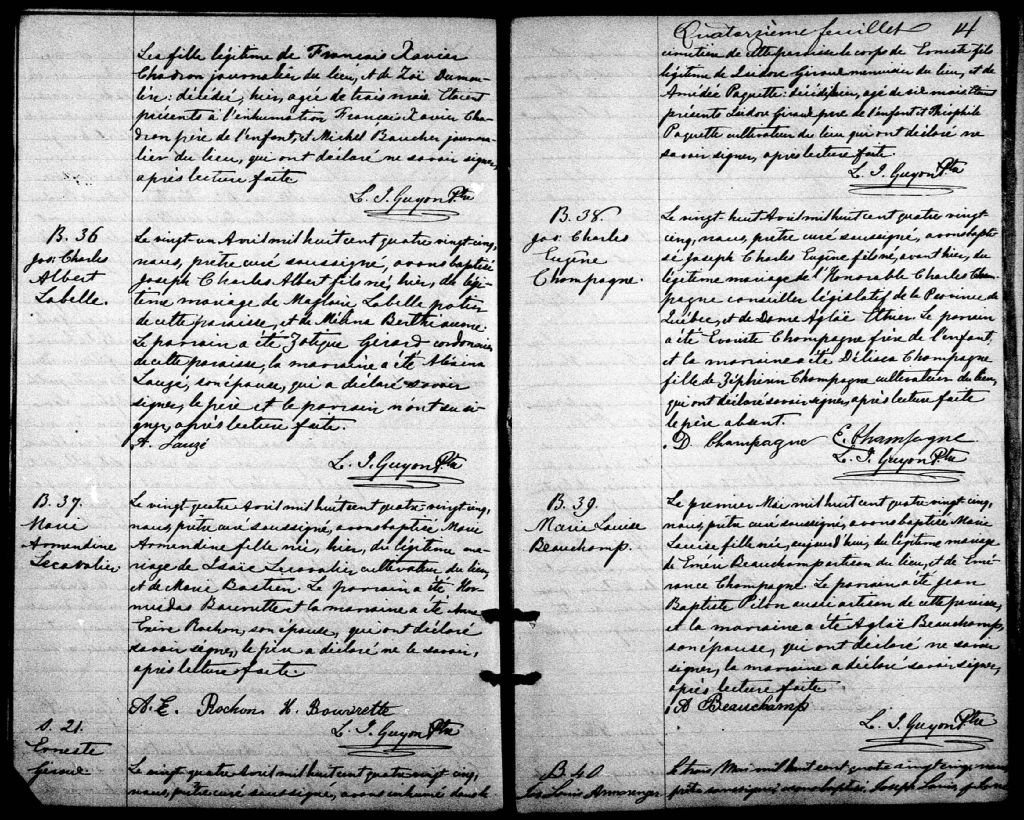 Les fille légitime de François Xavier
Chadron journalier du lieu, et de Zoë Dumou-
lin: décédée, hier, agée de trois mois. Etaient
présents à l'inhumation François Xavier Cha-
dron père de l'enfant, et Michel Baucher journa-
lier du lieu, qui ont déclaré ne savoir signer,
après lecture faite
L. J. Guyon Ptre
B. 36
Jos: Charles
Albert
Labelle.
Le vingt-un Avril mil huit cent quatre vingt cinq,
nous, prêtre curé soussigné, avons baptisé
Joseph Charles Albert fils né, hier, du légi-
time mariage de Magloire Labelle potier
de cette paroisse, et de Mélina Berthiaume.
Le parrain a été Zotique Gérard cordonnier
de cette paroisse, la marraine a été
Lauzé, son épouse, qui a déclaré savoir
signer, le père et le parrain n'ont su si-
gner, après lecture faite.
A. Lauzé
L. J. Guyon Ptre
B. 37.
Marie
Armendine
Lecavalier
Le vingt quatre Avril mil huit cent quatre vingt cinq,
nous, prêtre curé soussigné, avons baptisé Marie
Armendine fille née, hier, du légitime ma-
riage de Isaïe Lecavalier cultivateur du lieu,
et de Marie Bastien. Le parrain a été Hor-
misdas Bouvrette et la marraine a été Anne
Exire Rochon, son épouse, qui ont déclaré
savoir signer, le père a déclaré ne le savoir,
après lecture faite
A. E. Rochon H. Bouvrette
L. J. Guyon Ptre
S. 21.
Erneste
Giroux.
Le vingt quatre Avril mil huit cent quatre vingt cinq,
nous, prêtre curé soussigné, avons inhumé dans le
Quatorzième feuillet 14
cimetière de cette paroisse le corps de Erneste fils
légitime de Isidore Giroux menuisier du lieu, et de
Amédée Paquette: décédé, hier, agé de six mois. Etaient
présents Isidore Giroux père de l'enfant et Théophile
Paquette cultivateur du lieu qui ont déclaré ne
savoir signer, après lecture faite.
L. J. Guyon Ptre
B. 38.
Jos: Charles
Eugène
Champagne.
Le vingt huit Avril mil huit cent quatre vingt
cinq, nous, prêtre curé soussigné, avons bapti-
sé Joseph Charles Eugène fils né, avant hier, du
légitime mariage de l'Honorable Charles Cham-
pagne conseiller législatif de la Province de
Québec, et de Dame Aglaë Ethier. Le parrain
a été Evariste Champagne frère de l'enfant,
et la marraine a été Délisca Champagne
fille de Zéphirin Champagne cultivateur du lieu,
qui ont déclaré savoir signer, après lecture faite
le père absent.
D. Champagne E. Champagne
L. J. Guyon Ptre
B. 39.
Marie Louise
Beauchamp.
Le premier Mai mil huit cent quatre vingt cinq,
nous, prêtre curé soussigné, avons baptisé Marie
Louise fille née, aujourd'hui, du légitime mariage
de Eméri Beauchamp artisan du lieu, et de Emé-
rance Champagne. Le parrain a été Jean
Baptiste Pilon aussi artisan de cette paroisse,
et la marraine a été Aglaë Beauchamp,
son épouse, qui ont déclaré ne savoir
signer, la marraine a déclaré savoir signer,
après lecture faite
A Beauchamp
L. J. Guyon Ptre
B. 40
Jos Louis
Le trois, Mai mil huit cent quatre vingt cinq, nous
prêtre soussigné, avons baptisé, Joseph Louis, fils né